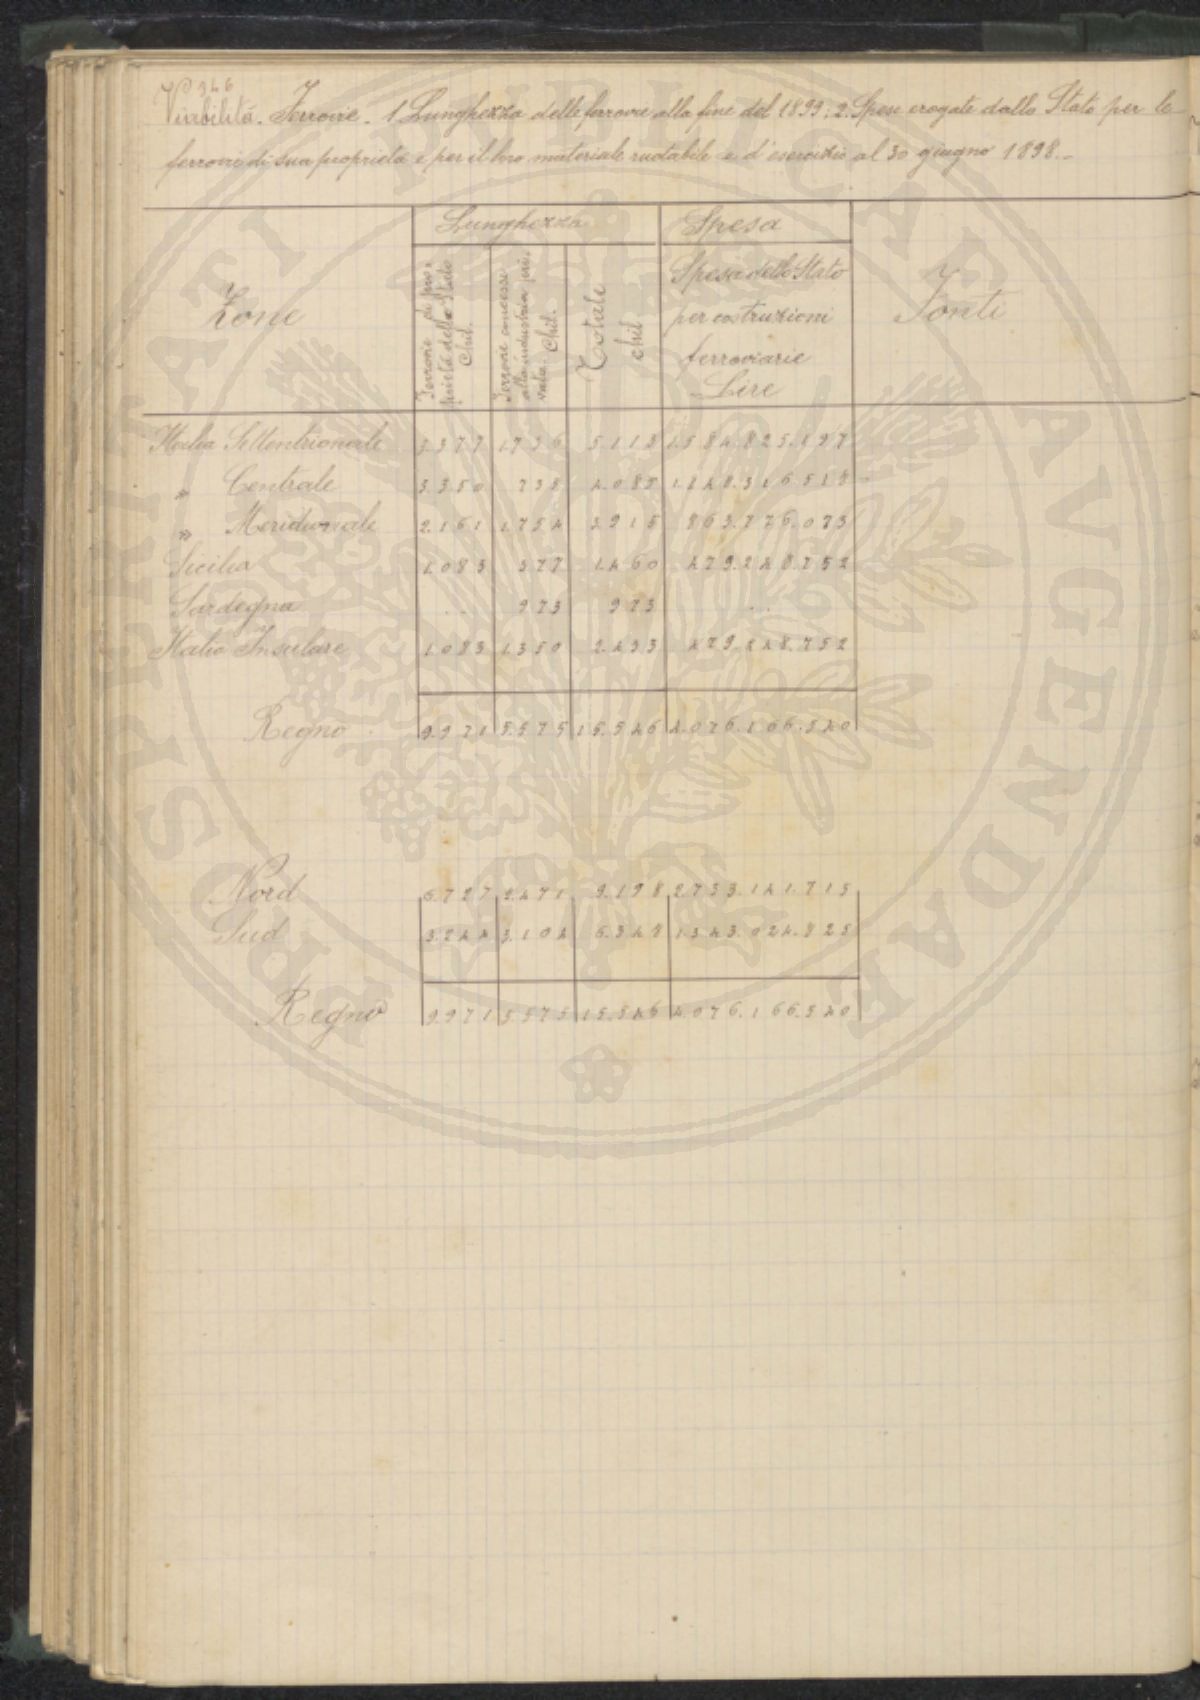 346
Viabilità. Ferrovie. 1 Lunghezza delle ferrovie alla fine del 1899; 2. Spese erogate dallo Stato per le
ferrovie di sua proprietà e per il loro materiale ruotabile e d'esercizio al 30 giugno 1898.-
Zone
Lunghezza
Spesa
Fonti
Ferrovie di pro-
prietà dello Stato
Chil.
Ferrovie concesse
alla industria pri-
vata. Chil.
Totale
chil
Spesa dello Stato
per costruzioni
ferroviarie
Lire
Italia Settentrionale 3.377 1.736 5.113 1.584.825.197
" Centrale 3.350 735 4.085 1.148.316.518
" Meridionale 2.161 1.754 3.915 863.776.073
Sicilia 1.083 377 1.460 479.248.752
Sardegna .. 973 973 ..
Italia Insulare 1.083 1.350 2.433 479.248.752
Regno 9.971 5.575 15.546 4.076.166.540
Nord 6.727 2.471 9.198 2733.141.715
Sud 3.244 3.104 6.348 1343.024.825
Regno 9.971 5.575 15.546 4.076.166.540
PROSPERITATI PUBLICAE AVGENDAE